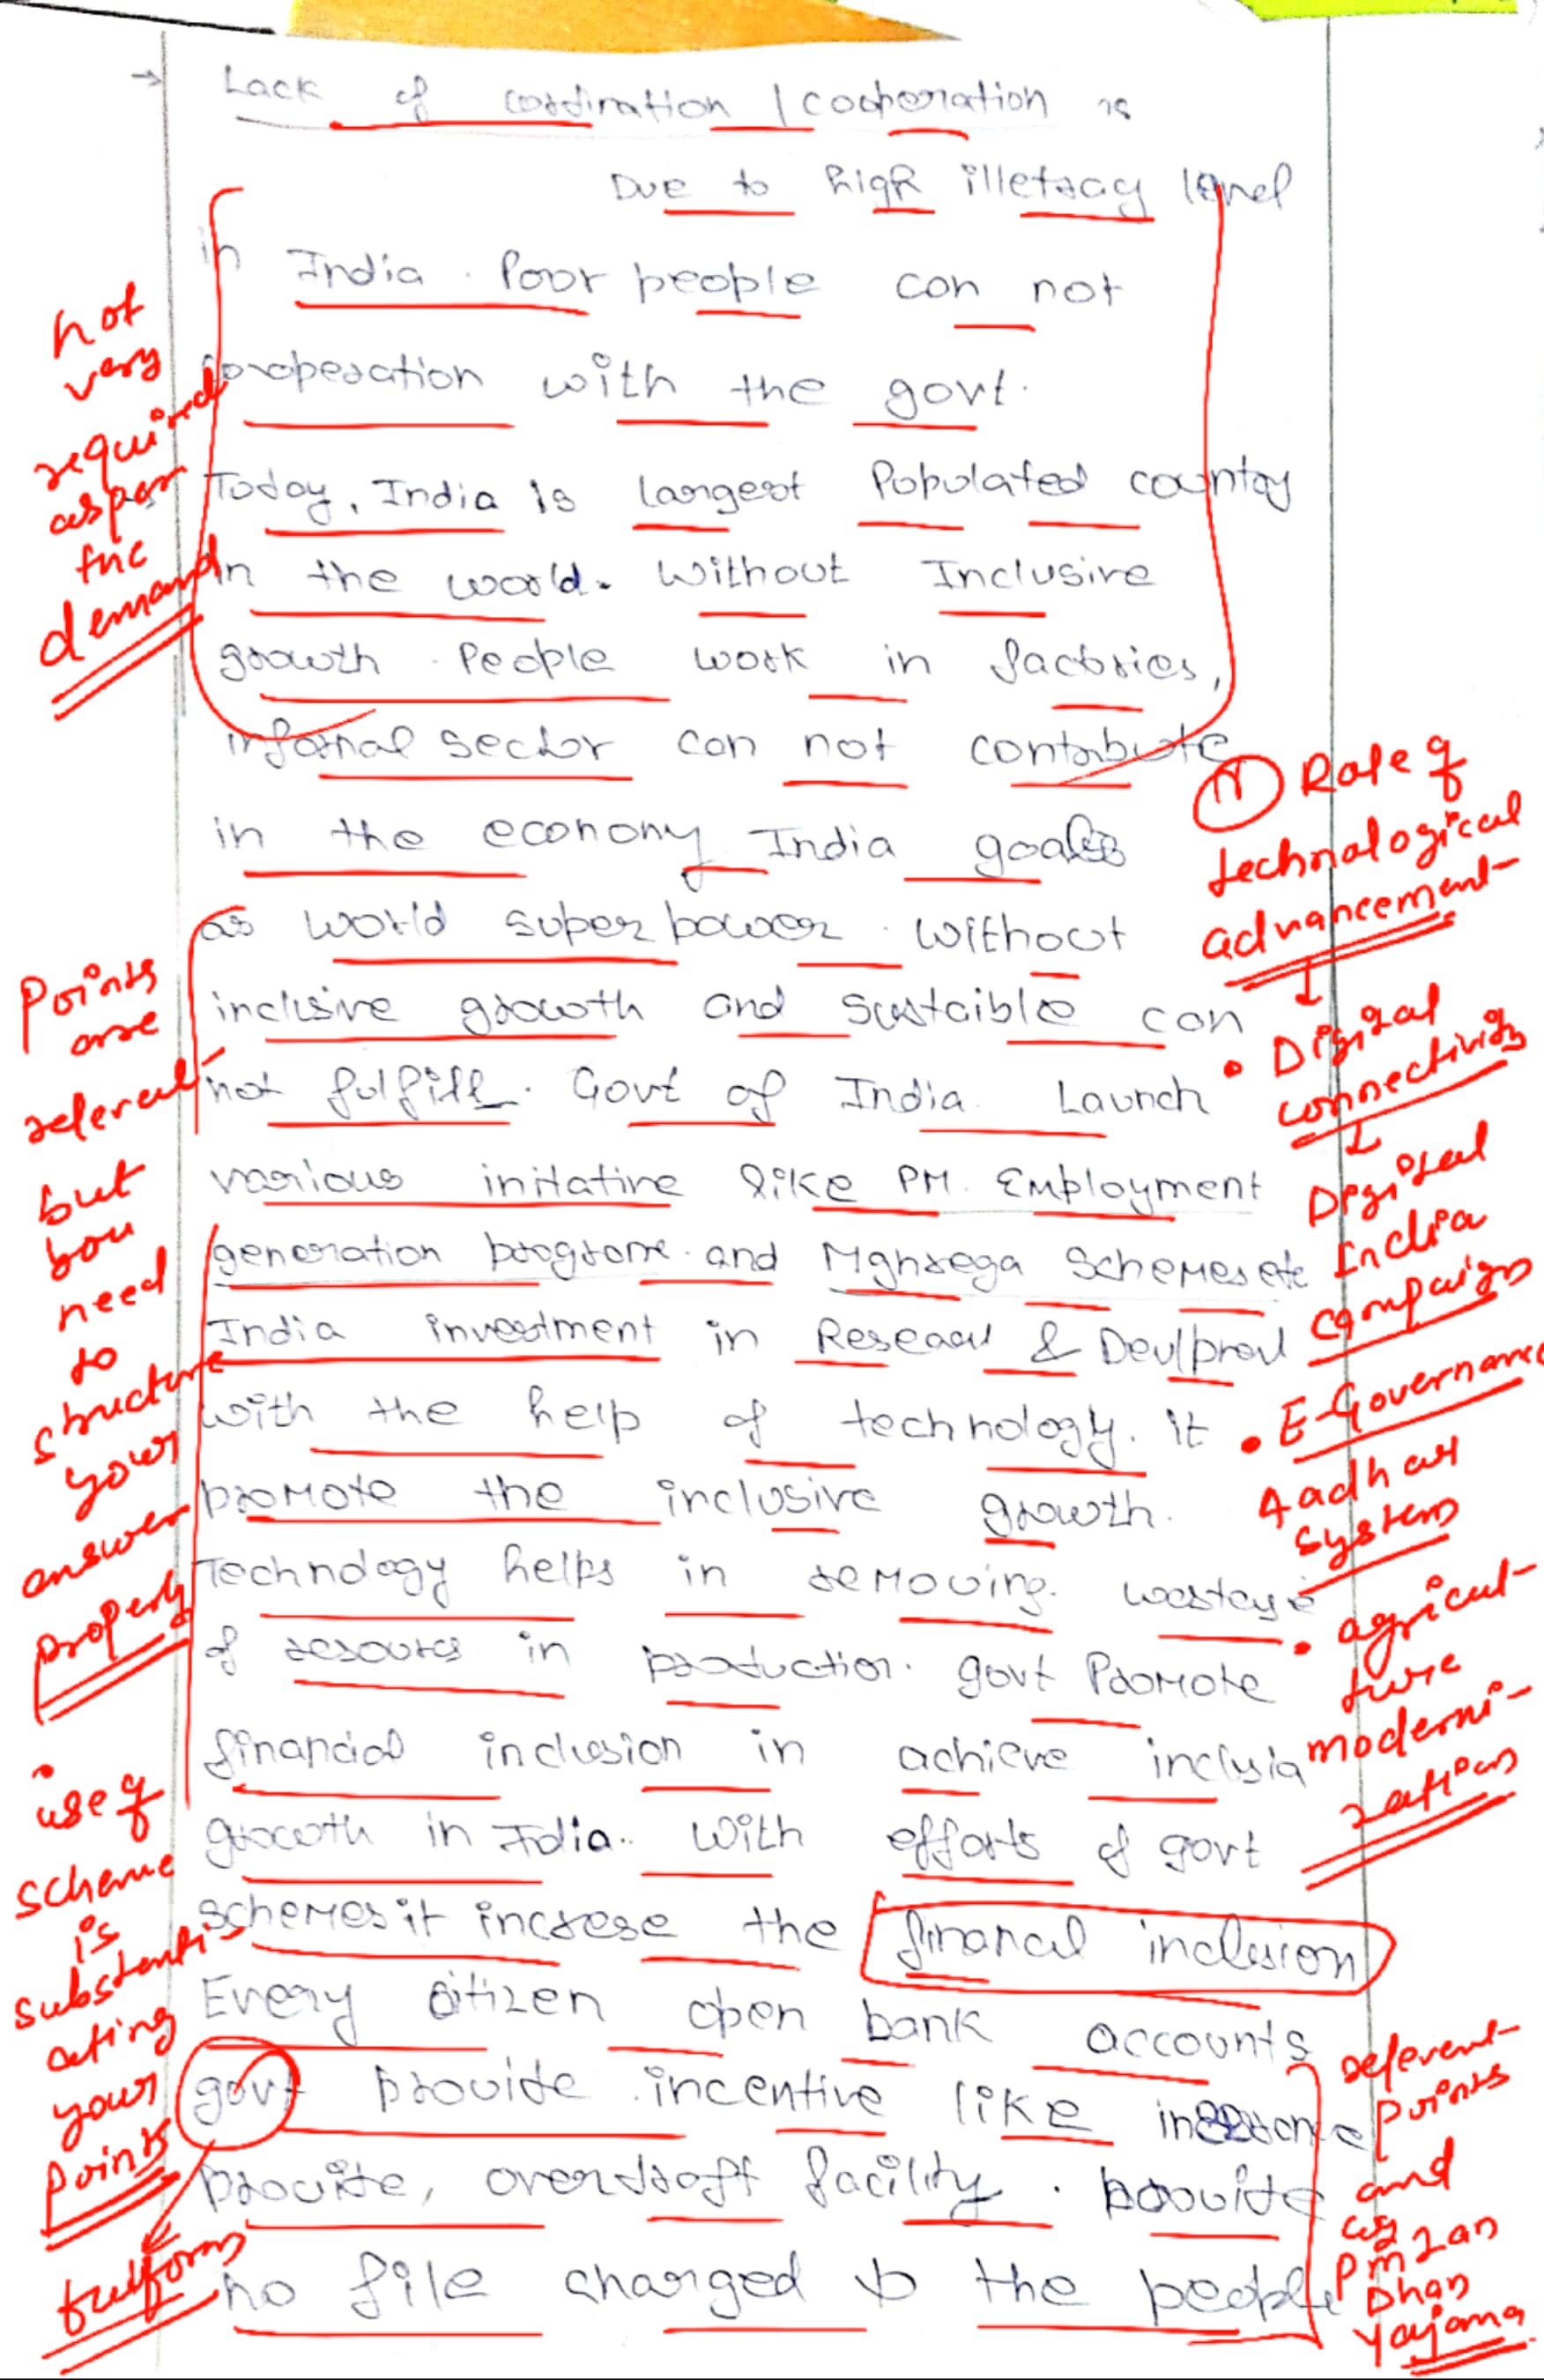 → Lack of cordination / cooporation is
Due to high illetracy level
in India. Poor people can not
coopesation with the govt.
Today, India is largest Populated country
in the world. Without Inclusive
growth. People work in factories,
informal sector can not contribute
in the economy India goals
as world super power. Without
inclusive growth and sustaible can
not fulfill. Govt of India Launch
various initative like PM. Employment
generation programe. and Mgnrega Schemes etc
India investment in & 
with the help of technology. it
promote the inclusive growth.
Technology helps in removing. wastage
of resources in production. govt Promote
financial inclusion in achieve
growth in Idia.. With efforts of govt
schemes it increse the financal inclusion
Every citizen open bank accounts
govt provide incentive like
provite, overdraft facility. provite
no file charged to the people
not
very
required
as per
the
demand
Points
are
relevent
but
you
need
to
structure
your
answer
properly
• use of
scheme
is
substanti-
ating
your
points
fullform
Role of
technological
advancement-
↓
• Digital
connectivity
↓
Digital
India
campaign
• E-Governance
Aadhar
system
• agricul-
ture
moderni-
zation
relevent-
points
and
eg
PM Jan
Dhan
Yojana